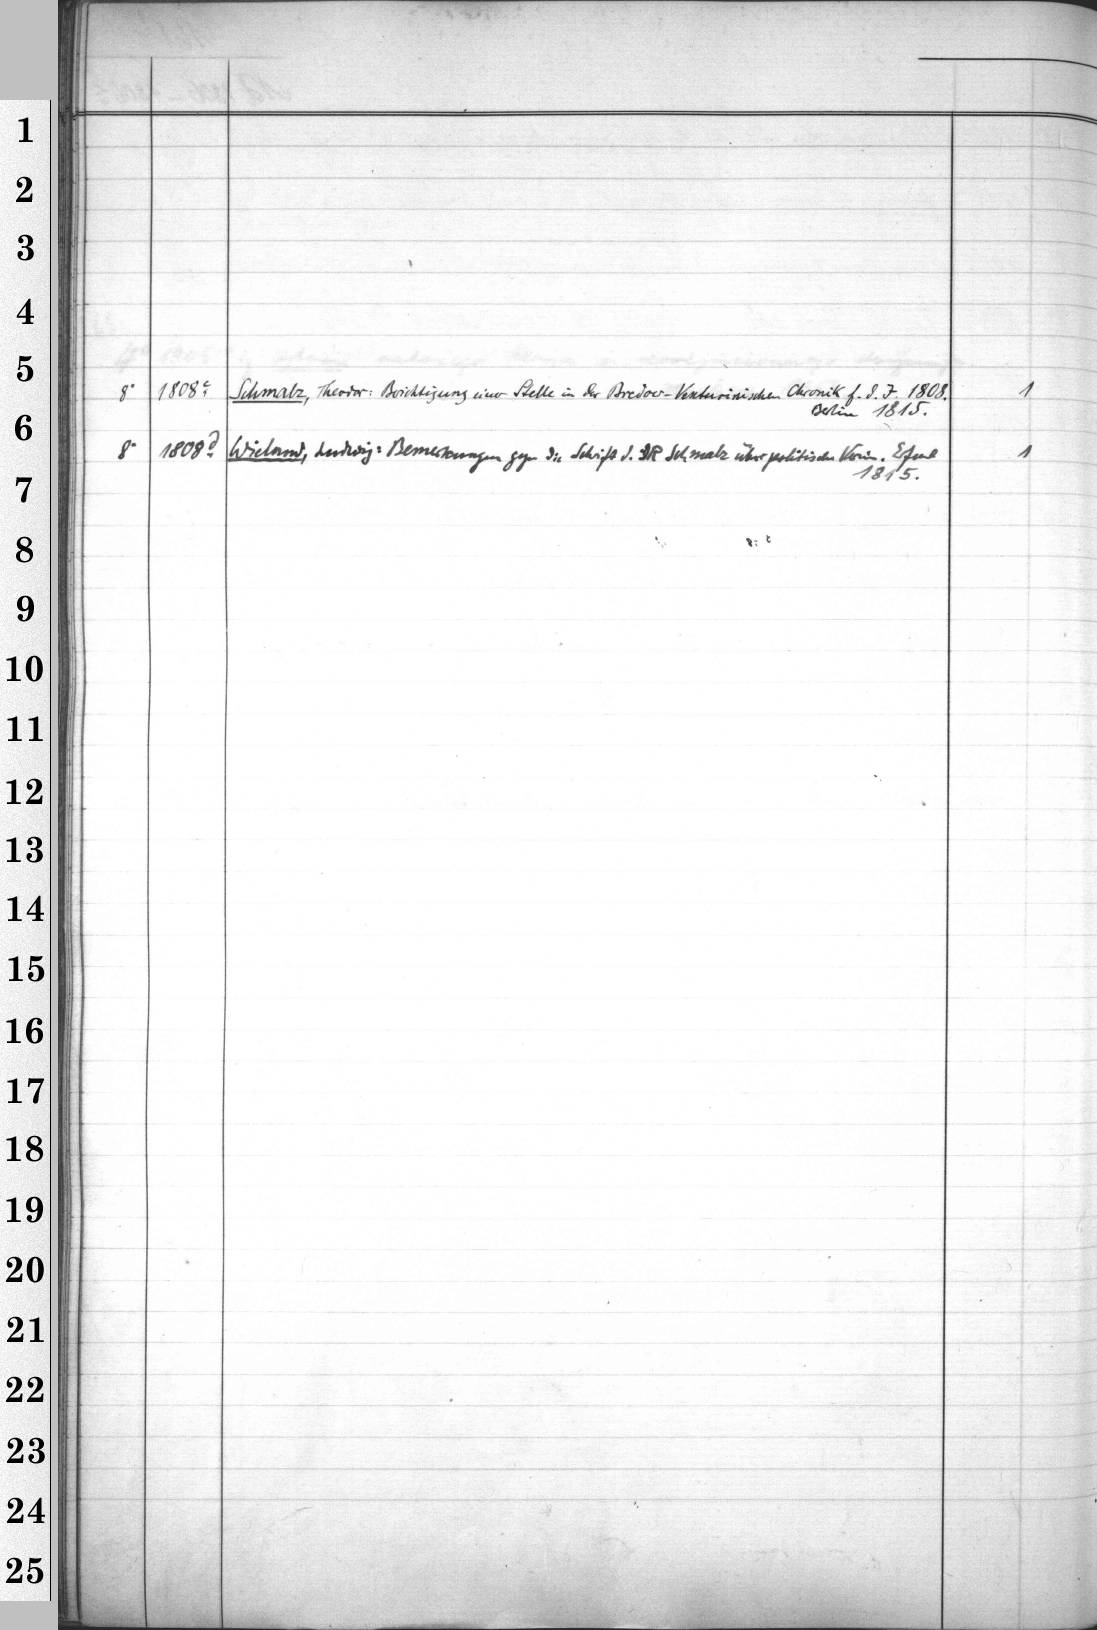 1
2
3
4
5
8° 1808c Schmalz, Theodor: Berichtigung einer Stelle in der Bredow-Venturinischen Chronik f. d. J. 1808. 1
Berlin 1815.
6
8° 1808d Wieland, Ludwig: Bemerkungen gegen die Schrift d. GR Schmalz über politische Verein. Erfurt 1
1815.
7
8
9
10
11
12
13
14
15
16
17
18
19
20
21
22
23
24
25